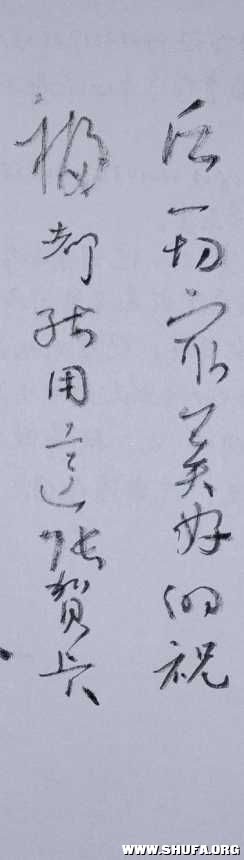 一切最美好的祝
福都能用這張賀卡
WWW.SHUFA.ORG